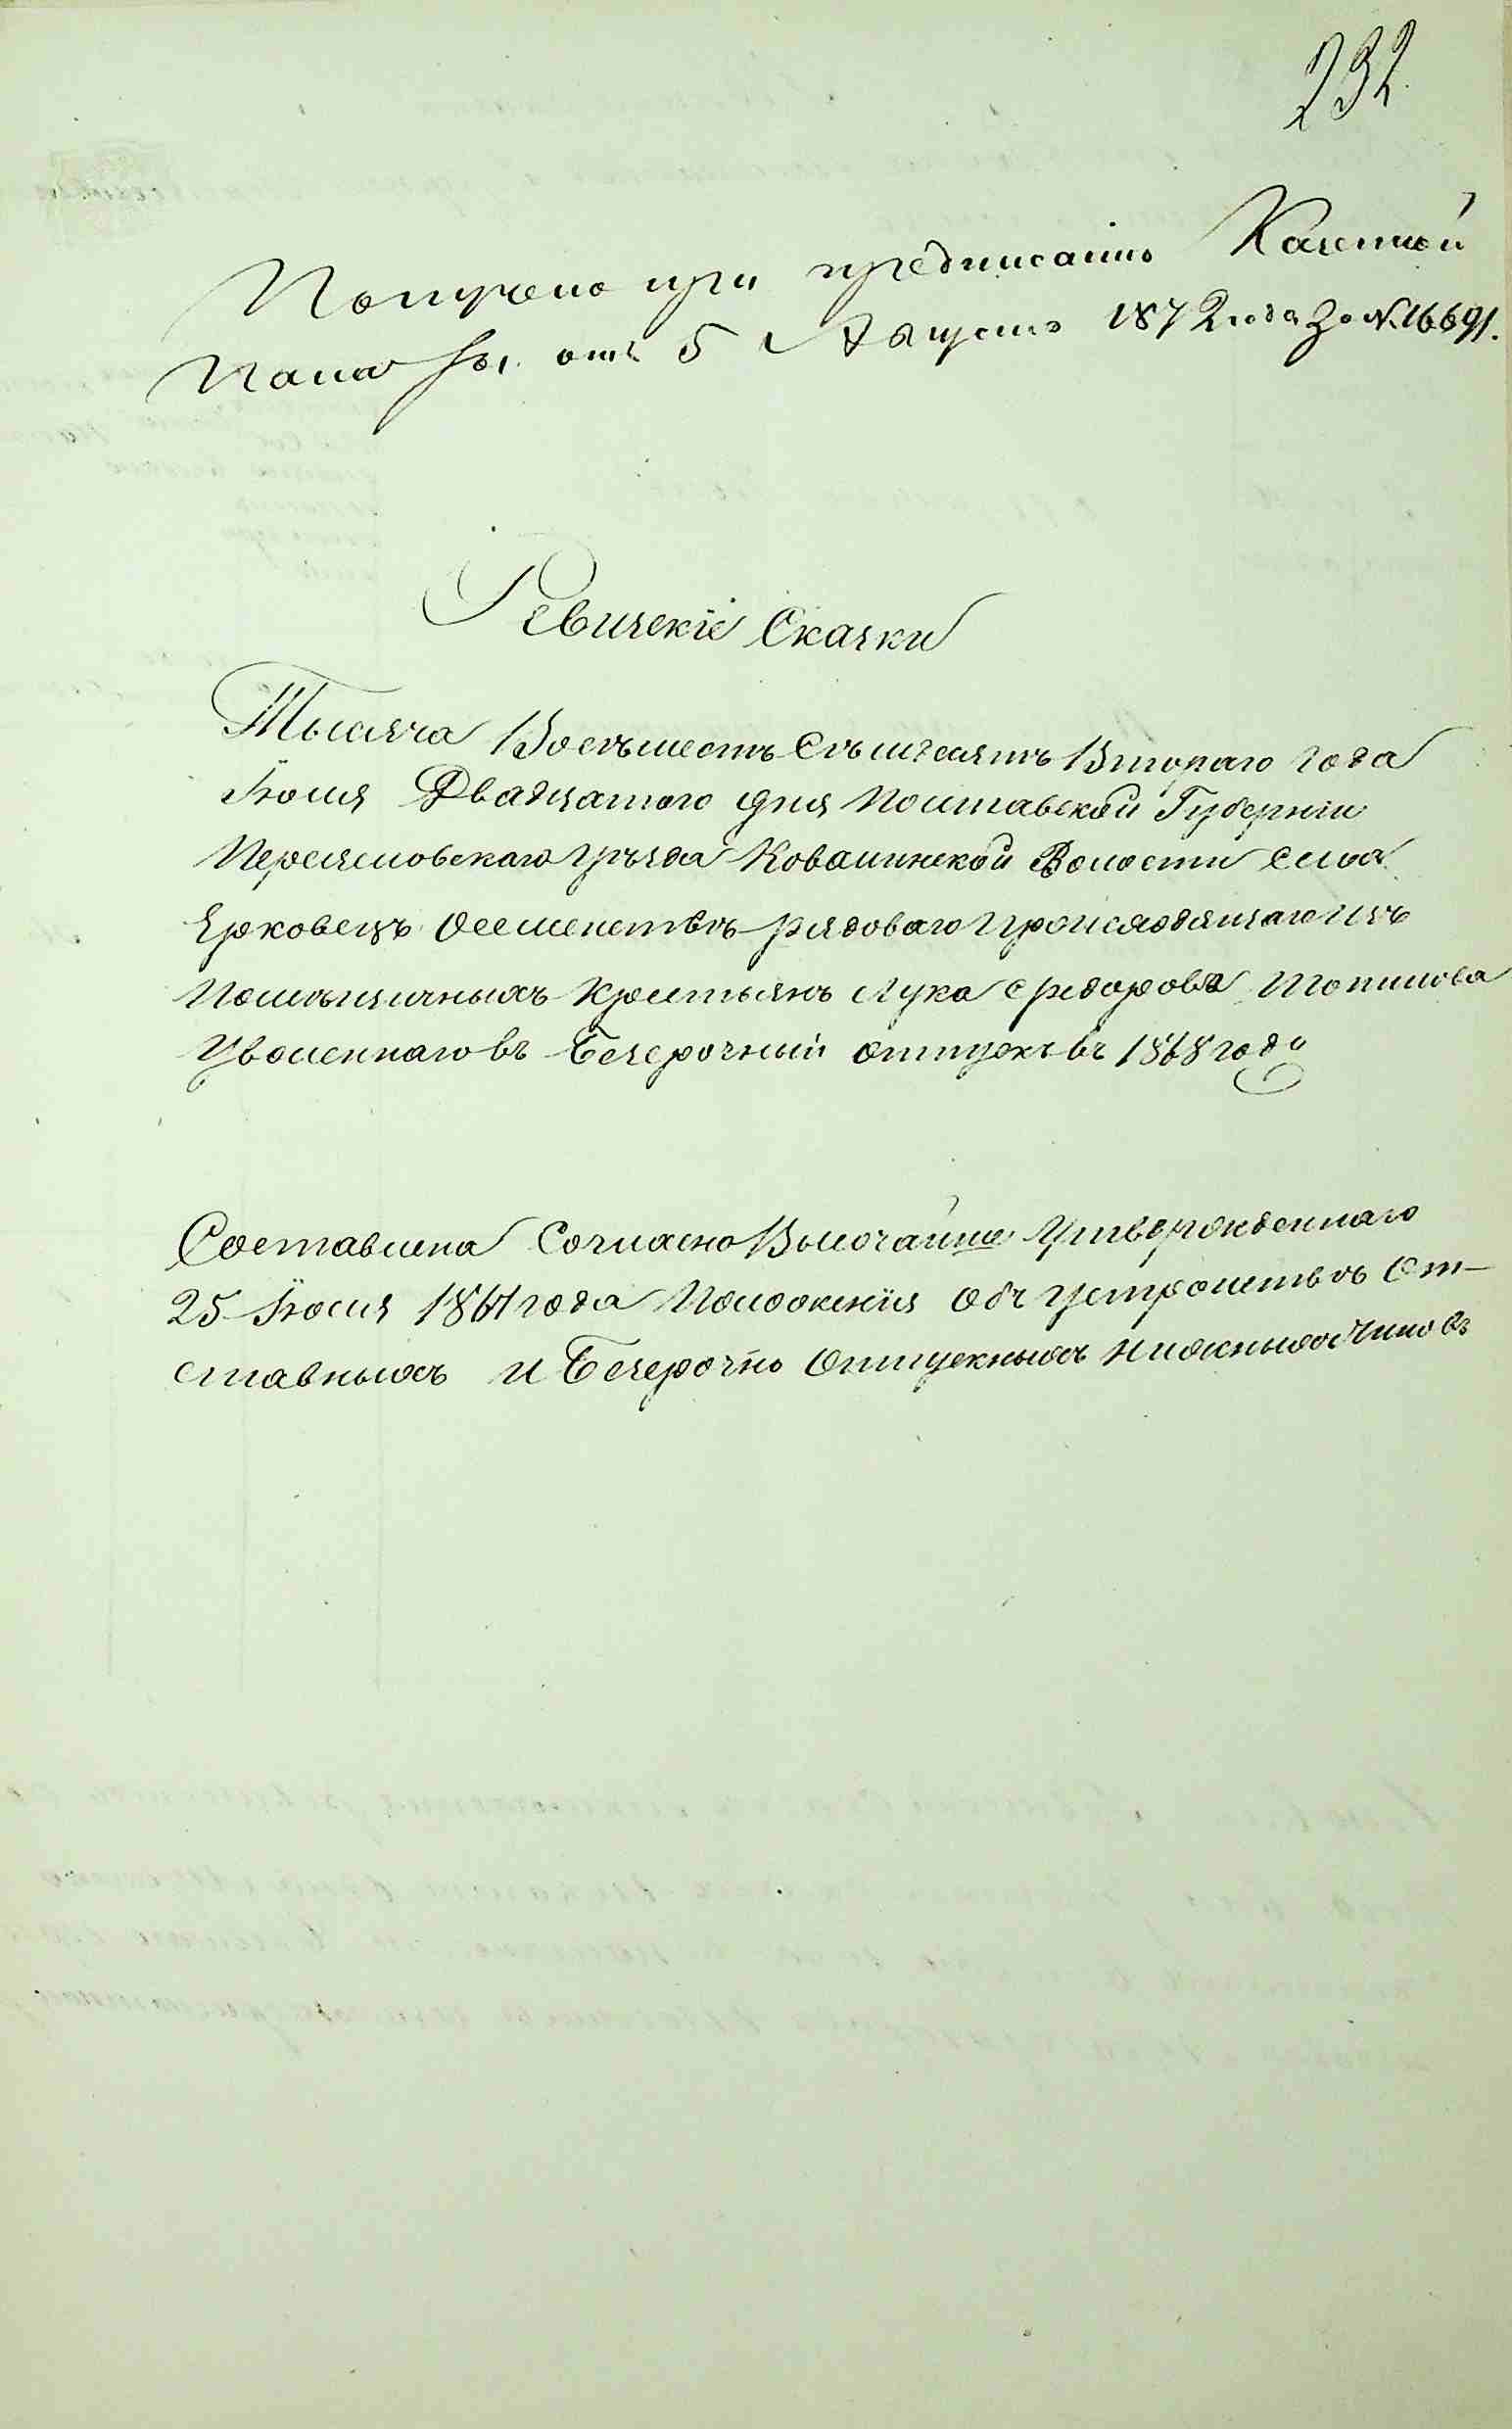 232.
Получено при предписанiи Казенной
Палаты отъ 5 Августа 1872 года За № 16691.
Ревизскiе Сказки
Тысяча Восѣмьсотъ Сѣмьдесятъ Втораго года
Iюля Двадцатого дня Полтавской Губернiи
Переяславскаго Уѣзда Ковалинской Волости села
Ярковець Осемействѣ рядоваго Происходящаго изъ
Помѣщичьихъ Крестьянъ Лука Федорова
Уволеннаго въ Безсрочный отпускъ въ 1868 году
Составлена Согласно Высочайше Утвержденнаго
25 Iюля 1867 года Положенiя Объ Устройствѣ От-
ставныхъ и Безсрочно Отпускныхъ Нижныхъ Чиновъ